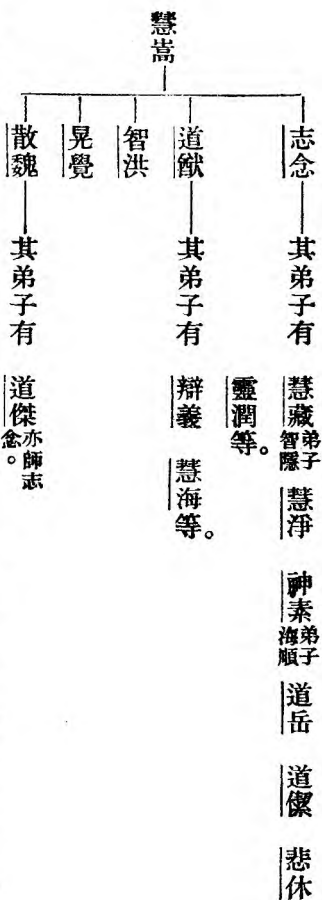 慧嵩
志念 其弟子有 慧藏弟子智隱 慧淨 神素弟子海順 道岳 道傑 悲休
靈潤等。
道猷 其弟子有 辯義 慧海等。
智洪
晃覺
散魏 其弟子有 道傑亦師志念。